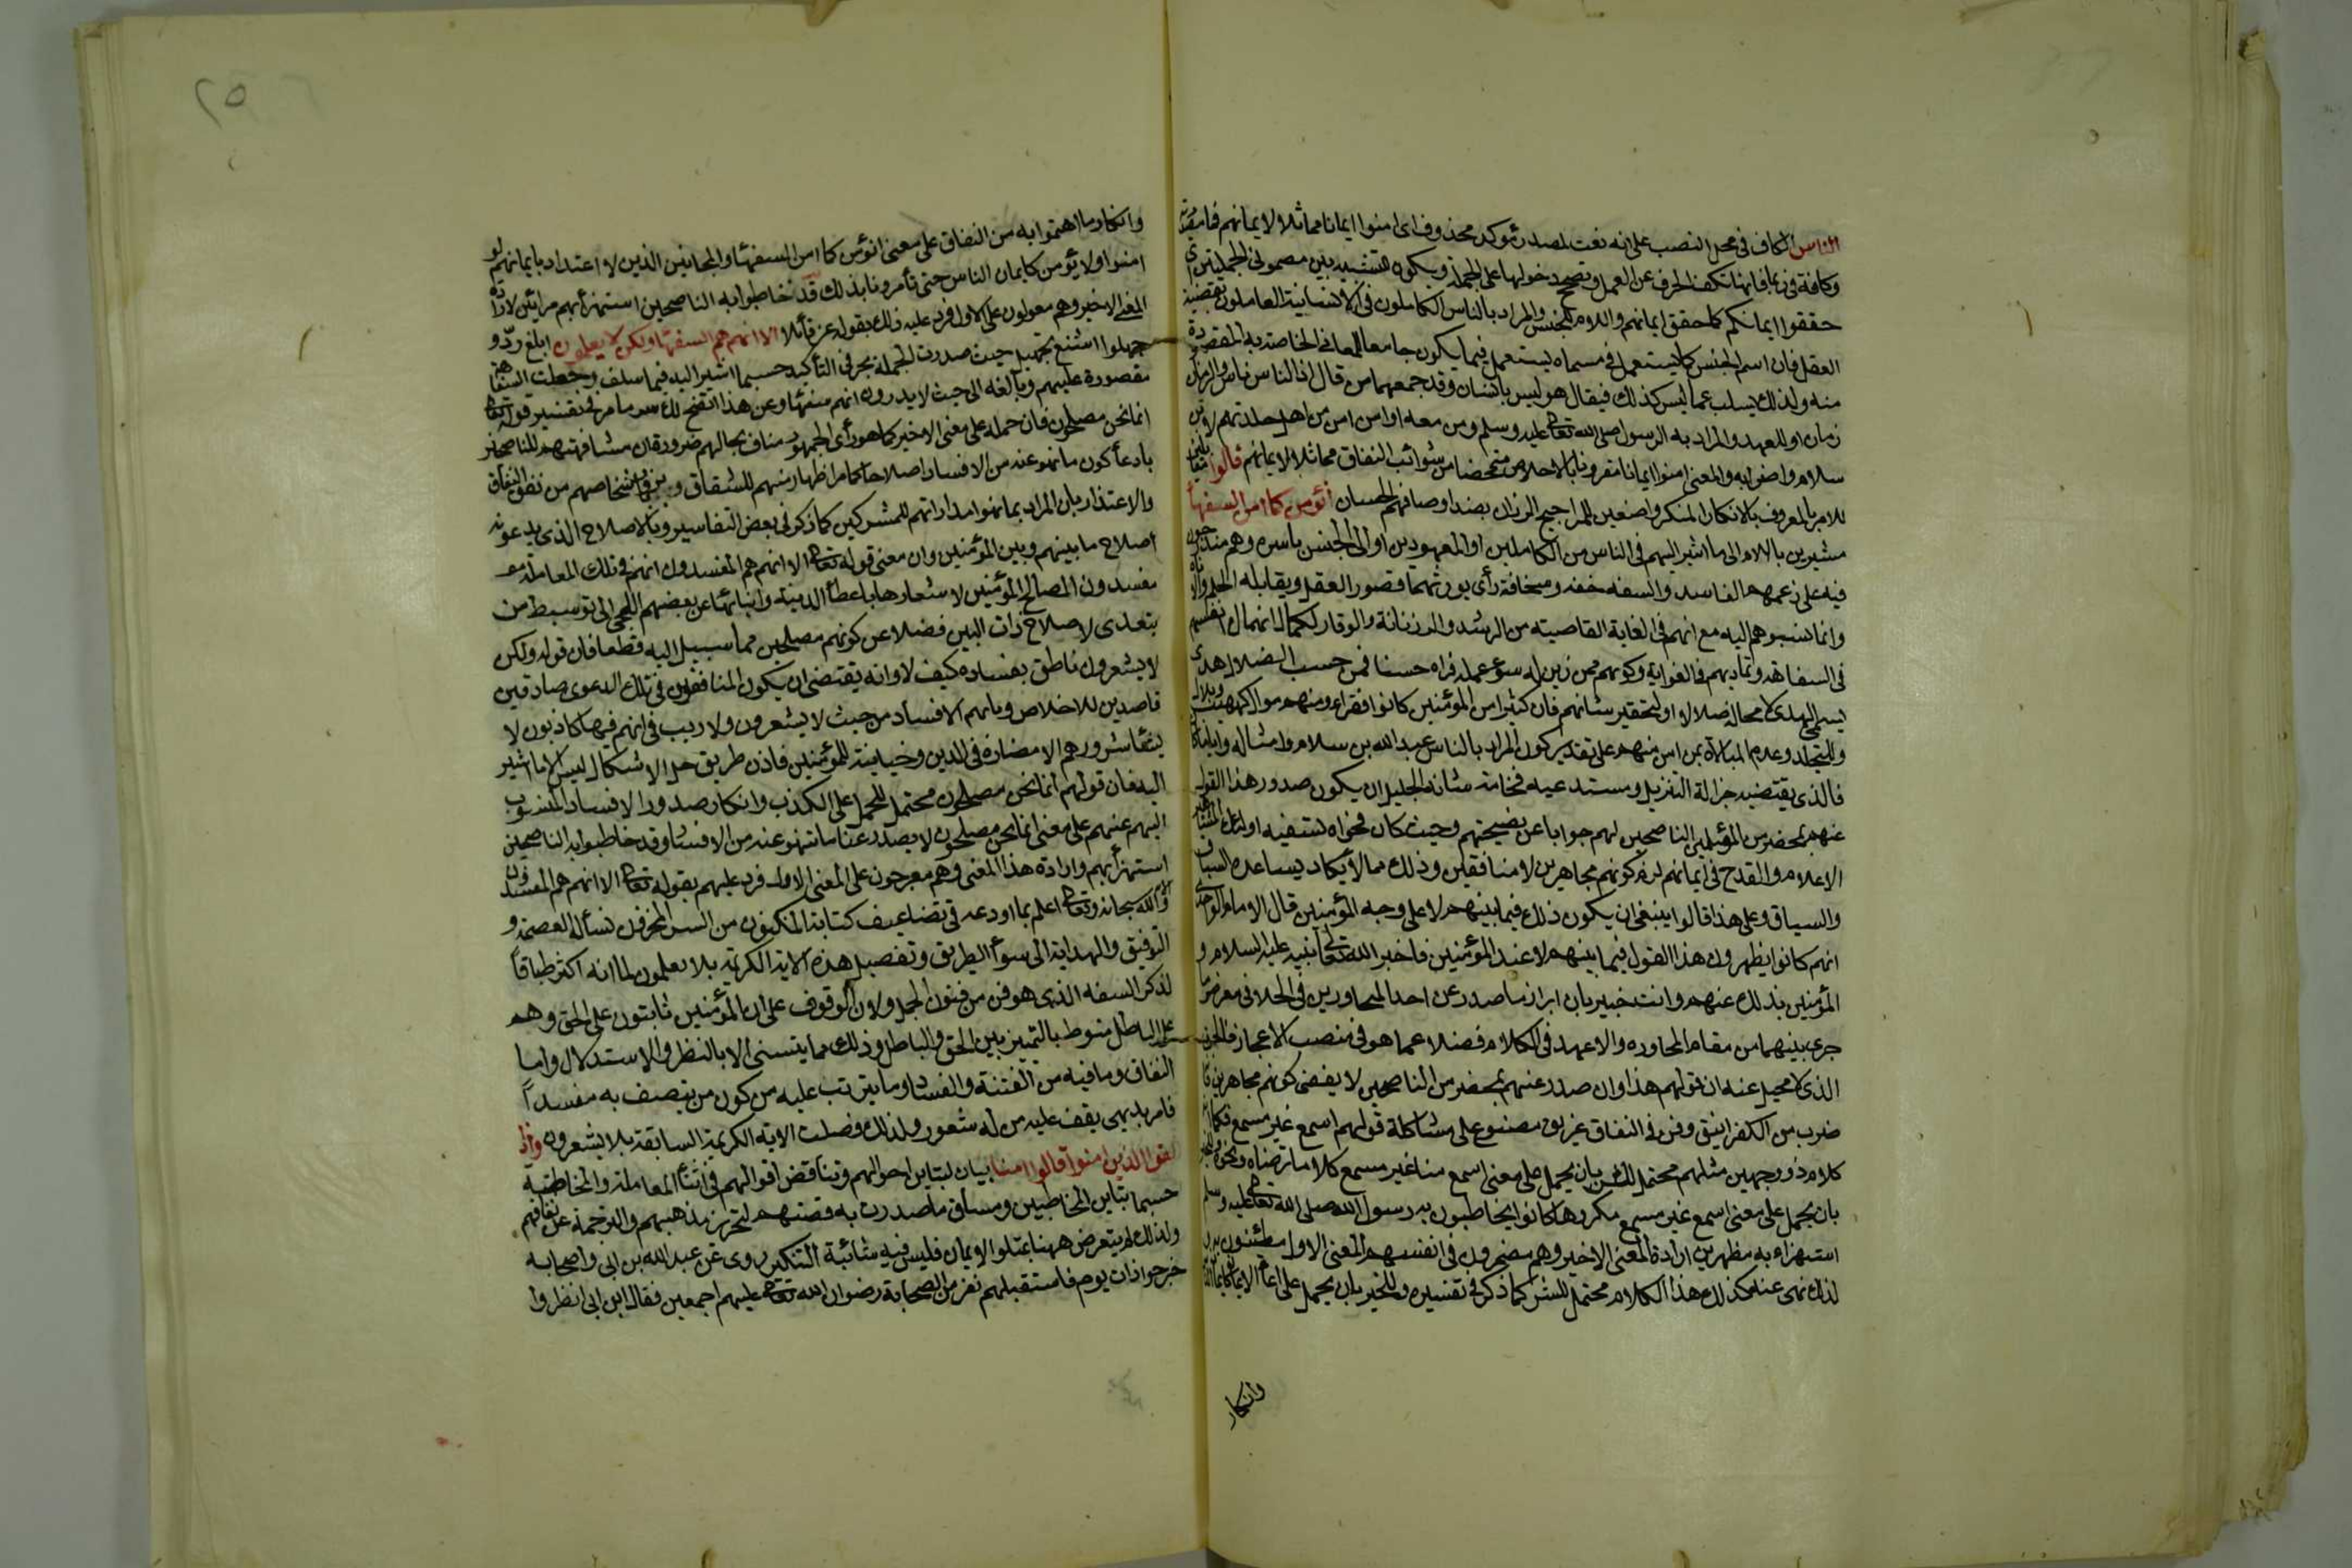 الناس الكاف في محل النصب على انه نعت لمصدر مؤكد محذوف اى امنوا ايمانا مماثلا لايمانهم فما مصدرية
وكافة في ربما فانها تكف الحرف عن العمل وتصحح دخولها على الجملة ويكون التشبيه بين مضموني الجملتين اى
حققوا ايمانكم كما حقق ايمانهم واللام للجنس والمراد بالناس الكاملون في الانسانية العاملون بقضية
العقل فان اسم الجنس كما يستعمل في مسماه يستعمل فيما يكون جامعا للمعاني الخاصة به المقصودة
منه ولذلك يسلب عما ليس كذلك فيقال هو ليس بانسان وقد جمعهما من قال اذ الناس ناس والزمان
زمان او للعهد والمراد به الرسول صلى الله تعالى عليه وسلم ومن معه او من امن من اهل جلدتهم كابن
سلام واضرابه والمعنى امنوا ايمانا مقرونا بالاخلاص متمحضا من شوائب النفاق مماثلا لايمانهم قالوا مقابلين
للامر بالمعروف بالانكار المنكر واصفين للمراجيح الرزان بضد اوصافهم الحسان انؤمن كما امن السفهاء
مشيرين باللام الى ما اشير اليهم في الناس من الكاملين او المعهودين او الى الجنس باسره وهم مندرجون
فيه على زعمهم الفاسد والسفه خفة وسخافة رأى يورثهما قصور العقل ويقابله الحلم والاناة
وانما نسبوهم اليه مع انهم في الغاية القاصية من الرشد والرزانة والوقار لكمال انهماك انفسهم
في السفاهة وتماديهم في الغواية وكونهم ممن زين له سوء عمله فراه حسنا فمن حسب الضلال هدى
يسمى الهدى لا محالة ضلالا او لتحقير شانهم فان كثيرا من المؤمنين كانوا فقراء ومنهم موال كصهيب وبلال
وللتجلد وعدم المبالاة بمن امن منهم على تقدير كون المراد بالناس عبد الله بن سلام وامثاله وايا ما كان
فالذى يقتضيه جزالة التنزيل ويستدعيه فخامة شانه الجليل ان يكون صدور هذا القول
عنهم بمحضر من المؤمنين الناصحين لهم جوابا عن نصيحتهم وحيث كان فحواه تسفيه اولئك المشاهير
الاعلام والقدح في ايمانهم لزم كونهم مجاهرين لا منافقين وذلك مما لا يكاد يساعده السباق
والسياق وعلى هذا قالوا ينبغي ان يكون ذلك فيما بينهم لا على وجه المؤمنين قال الامام الواحدى
انهم كانوا يظهرون هذا القول فيما بينهم لا عند المؤمنين فاخبر الله تعالى نبيه عليه السلام و
المؤمنين بذلك عنهم وانت خبير بان ابراز ما صدر عن احد المتحاورين في الخلا في معرض ما
جرى بينهما من مقام المحاورة والاعهد في الكلام فضلا عما هو في منصب الاعجاز فالحق
الذى لا محيد عنه ان قولهم هذا وان صدر عنهم بمحضر من الناصحين لا يقتضي كونهم مجاهرين فانه
ضرب من الكفر انيق وفن في النفاق عريق مصنوع على مشاكلة قولهم اسمع غير مسمع فكما انه
كلام ذو وجهين مثلهم محتمل للشر بان يحمل على معنى اسمع منا غير مسمع كلاما ترضاه ونحوه وللخير
بان يحمل على معنى اسمع غير مسمع مكروها كانوا يخاطبون به رسول الله صلى الله تعالى عليه وسلم
استهزاء به مظهرين ارادة المعنى الاخير وهم مضمرون في انفسهم المعنى الاول مطمئنون به
لذلك نهى عنه كذلك هذا الكلام محتمل للشر كما ذكر في تفسيره وللخير بان يحمل على ادعاء الايمان كايمان الناس
وانكار
٢٥
وانكار ما اهتموا به من النفاق على معنى انؤمن كما امن السفهاء والمجانين الذين لا اعتداد بايمانهم لو
امنوا ولا نؤمن كايمان الناس حتى تأمرونا بذلك قد خاطبوا به الناصحين استهزاء بهم مرائين لارادة
المعنى الاخير وهم معولون على الاول فرد عليه ذلك بقوله عز قائلا الا انهم هم السفهاء ولكن لا يعلمون ابلغ رد و
جهلوا اشنع تجهيل حيث صدرت الجملة بحرفي التأكيد حسبما اشير اليه فيما سلف وجعلت السفاهة
مقصورة عليهم وبالغة الى حيث لا يدرون انهم سفهاء وعن هذا اتضح لك سر ما مر في تفسير قوله تعالى
انما نحن مصلحون فان حمله على المعنى الاخير كما هو رأى الجمهور مناف بحالهم ضرورة ان مشافهتهم للناصحين
بادعاء كون ما نهوا عنه من الافساد اصلاحا كما مر اظهار منهم للشقاق وبروز باشخاصهم من نفق النفاق
والاعتذار بان المراد بما نهوا مداراتهم للمشركين كما ذكر في بعض التفاسير وبالاصلاح الذى يدعونه
اصلاح ما بينهم وبين المؤمنين وان معنى قوله تعالى الا انهم هم المفسدون انهم في تلك المعاملة مع
مفسدون المصالح المؤمنين لاشعارها باعطاء الدنية وانبائها عن بعضهم الملجي الى توسيط من
يتعدى لاصلاح ذات البين فضلا عن كونهم مصلحين مما سبيل اليه قطعا فان قوله ولكن
لا يشعرون ناطق بفساده كيف لا وانه يقتضي ان يكون المنافقون في تلك الدعوى صادقين
قاصدين للاخلاص وباتهم الافساد من حيث لا يشعرون ولا ريب في انهم فيها كاذبون لا
ينشأ شرورهم الا مضارة في الدين وخيانة للمؤمنين فاذن طريق حل الاشكال ليس الا ما اشير
اليه فان قولهم انما نحن مصلحون محتمل للحمل على الكذب وانكار صدور الافساد المنسوب
اليهم عنهم على معنى انما نحن مصلحون لا يصدر عنا ما تنهونه عنه من الافساد وقد خاطبوا به الناصحين
استهزاء بهم وارادة هذا المعنى وهم معرجون على المعنى الاول فرد عليهم بقوله تعالى الا انهم هم المفسدون
والله سبحانه وتعالى اعلم بما اودعه في تضاعيف كتابه المكنون من السر المخزون نسأله العصمة و
التوفيق والهداية الى سواء الطريق وتفصيل هذه الاية الكريمة بلا يعلمون لما انه اكثر طباقا
لذكر السفه الذى هو فن من فنون الجهل ولان الوقوف على ان المؤمنين ثابتون على الحق وهم
على الباطل منوط بالتمييز بين الحق والباطل وذلك مما يتسنى الا بالنظر والاستدلال واما
النفاق وما فيه من الفتنة والفساد وما يترتب عليه من كون من يتصف به مفسدا
فامر بديهى يقف عليه من له شعور ولذلك فصلت الاية الكريمة السابقة بلا يشعرون واذا
لقوا الذين امنوا قالوا امنا بيان لتباين احوالهم وتناقض اقوالهم في اثناء المعاملة والمخاطبة
حسبما تباين المخاطبين ومساق ما صدرت به قصتهم لتحرير مذهبهم والترجمة عن نفاقهم
ولذلك لم يتعرض ههنا بمتعلق الايمان فليس فيه شائبة التكرير روى عن عبد الله بن ابى واصحابه
خرجوا ذات يوم فاستقبلهم نفر من الصحابة رضوان الله تعالى عليهم اجمعين فقال ابن ابى انظروا